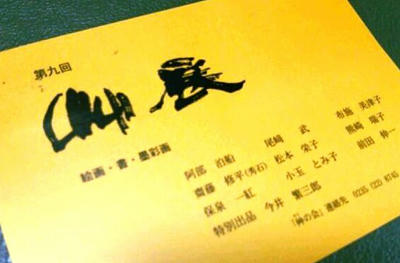 第九回
展
絵画・書・墨彩画
阿部 泊船 尾崎 武 布施 美津子
齋藤 修平(秀石) 松本 栄子 熊崎 瑞子
保泉 一虹 小玉 とみ子 前田 伸一
特別出品 今井 繁三郎
の会」連絡先 0235 (22) 8745